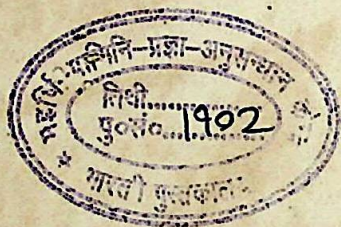 महर्षि-पाणिनि-प्रज्ञा-अनुसन्धान
तिथी...............
पु०सं०...1902
* भारती पुस्तकालय